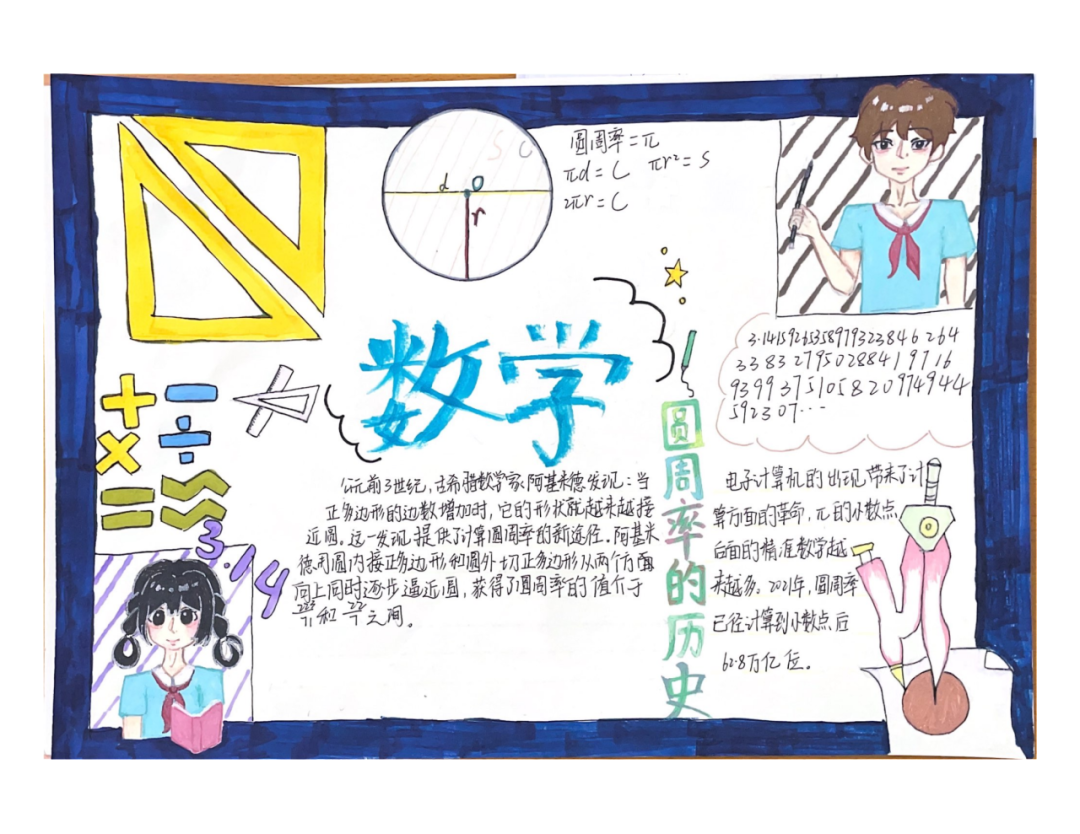 圆周率=π
πd=C πr²=S
2πr=C
S C
d O
r
数学
3.14159265358979323846264
33832795028841971 6
939937510582097494 4
592307…
圆周率的历史
公元前3世纪,古希腊数学家阿基米德发现:当
正多边形的边数增加时,它的形状就越来越接
近圆。这一发现提供了计算圆周率的新途径.阿基米
德用圆内接正多边形和圆外切正多边形从两个方面
向上同时逐步逼近圆,获得了圆周率的值介于
223/71和22/7之间。
电子计算机的出现带来了计
算方面的革命,π的小数点
后面的精准数学越
来越多.2021年,圆周率
已经计算到小数点后
62.8万亿位。
+ -
× ÷
= ≈
3.14